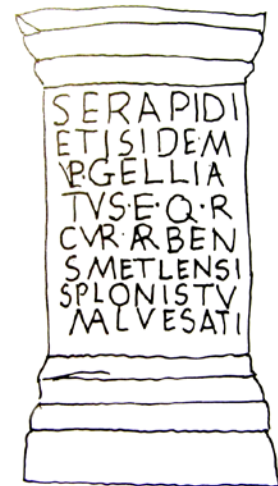 SERAPIDI
ETISIDE·M
VP·GELLIA
TVS·E·Q·R
CVR·AR·BEN
S·METLENSI
SPLONISTV
MALVESATI